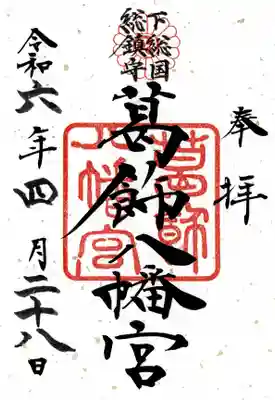 奉拝
下総国
総鎮守
葛飾八幡宮
葛飾
八幡宮
令和六年四月二十八日